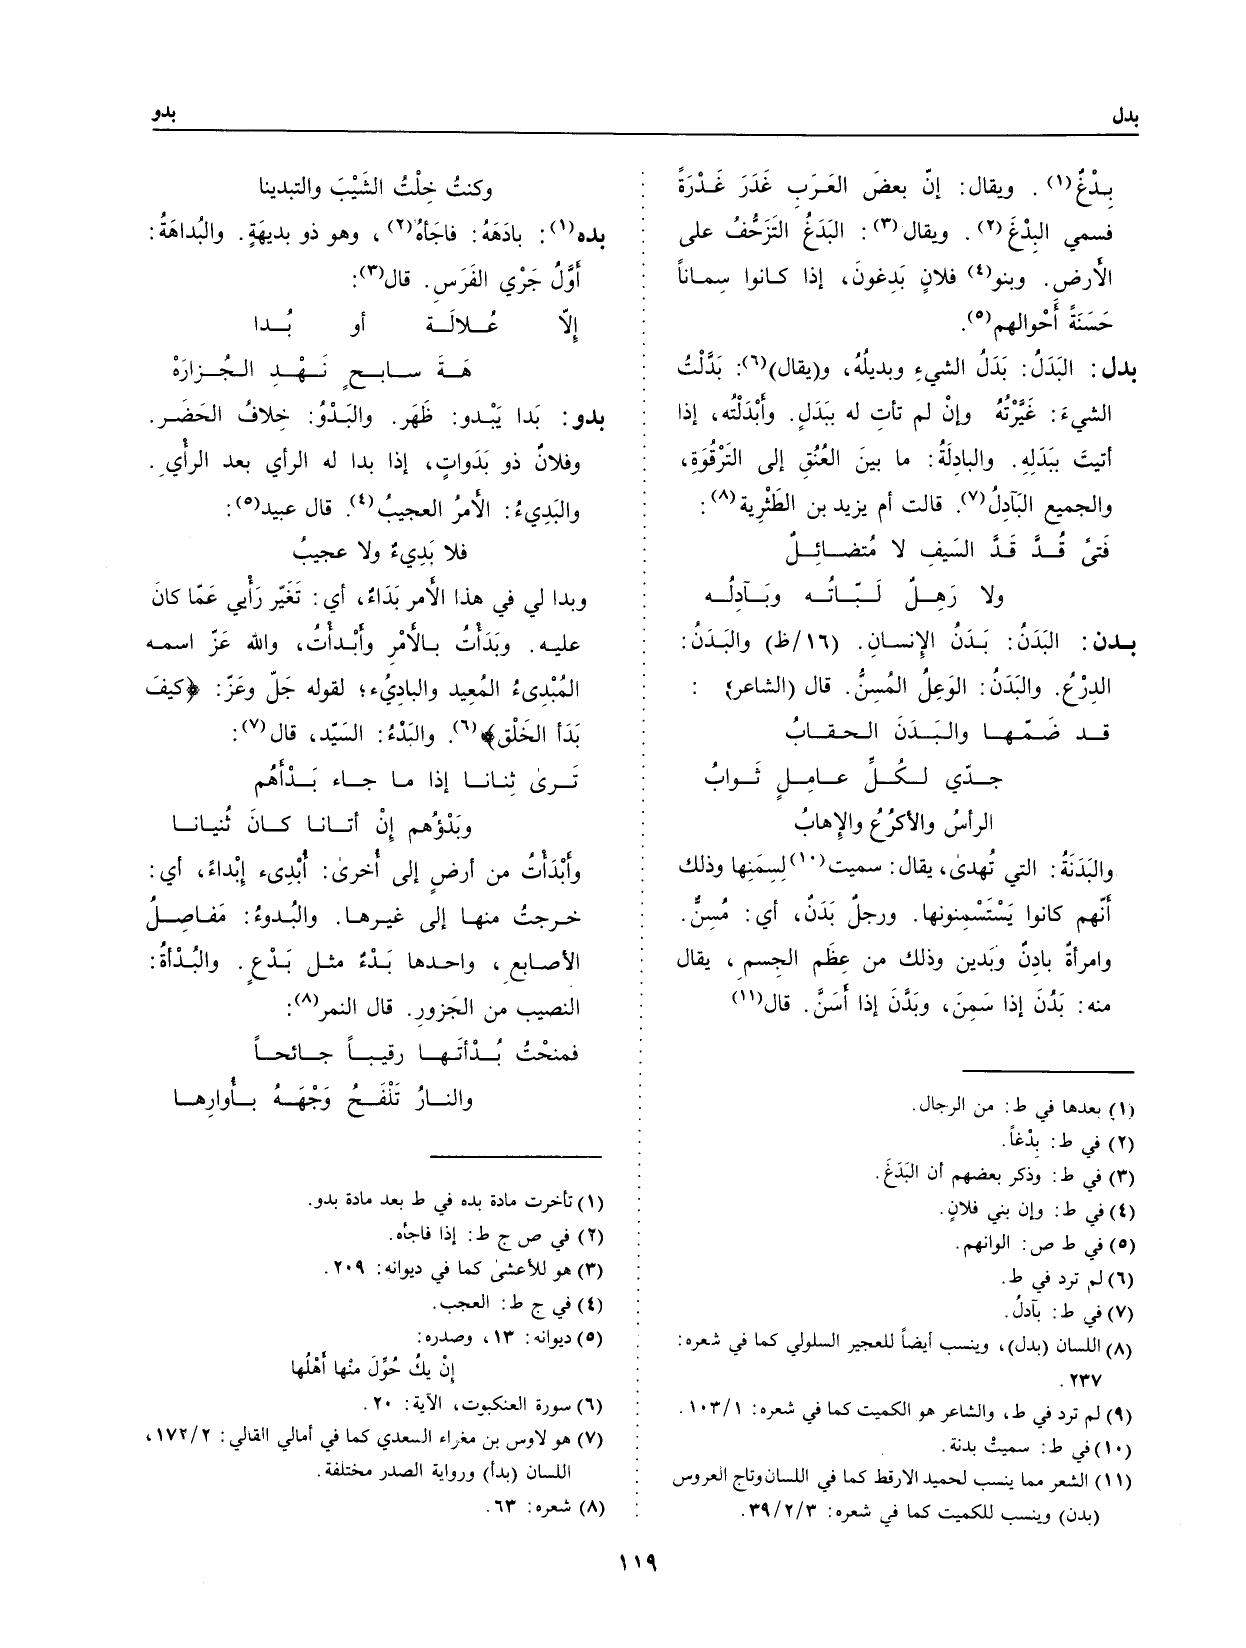 بدل
بدو
بِدْغٌ(١). ويقال: إنّ بعضَ العَرَبِ غَدَرَ غَدْرَةً
فسمي البِدْغَ(٢). ويقال(٣): البَدَغُ التَزَحُّفُ على
الأرض. وبنو(٤) فلانٍ بَدِغونَ، إذا كانوا سِماناً
حَسَنَةً أَحْوالهم(٥).
بدل: البَدَلُ: بَدَلُ الشيءِ وبديلُهُ، و(يقال)(٦): بَدَّلْتُ
الشيءَ: غَيَّرْتُهُ وإنْ لم تأتِ له بِبَدَلٍ. وأَبْدَلْته، إذا
أتيتَ بِبَدَلِهِ. والبادِلَةُ: ما بينَ العُنُقِ إلى التَرْقُوَةِ،
والجميع البَآدِلُ(٧). قالت أم يزيد بن الطَثْرية(٨):
فَتىً قُـدَّ قَـدَّ السَيفِ لا مُتضـائِـلٌ
ولا رَهِـلٌ لَـبّـاتُـه وبَـآدِلُـه
بـدن: البَدَنُ: بَدَنُ الإنسانِ. (١٦/ظ) والبَدَنُ:
الدِرْعُ. والبَدَنُ: الوَعِلُ المُسِنُّ. قال (الشاعر) :
قـد ضَـمَّـهـا والبَـدَنَ الـحِقـابُ
جـدّي لـكُـلِّ عـامِـلٍ ثَـوابُ
الرأسُ والأكرُعُ والإهابُ
والبَدَنَةُ: التي تُهدىٰ، يقال: سميت(١٠) لِسِمَنِها وذلك
أنّهم كانوا يَسْتَسْمِنونها. ورجلٌ بَدَنٌ، أي: مُسِنٌّ.
وامرأةٌ بادِنٌ وبَدين وذلك من عِظَم الجسم، يقال
منه: بَدُنَ إذا سَمِنَ، وبَدَّنَ إذا أَسَنَّ. قال(١١)
(١) بعدها في ط: من الرجال.
(٢) في ط: بِدْغاً.
(٣) في ط: وذكر بعضهم أن البَدَغَ.
(٤) في ط: وإن بني فلانٍ.
(٥) في ط ص: الوانهم.
(٦) لم ترد في ط.
(٧) في ط: بَآدلُ.
(٨) اللسان (بدل)، وينسب أيضاً للعجير السلولي كما في شعره:
٢٣٧.
(٩) لم ترد في ط، والشاعر هو الكميت كما في شعره: ١٠٣/١.
(١٠) في ط: سميتْ بدنة.
(١١) الشعر مما ينسب لحميد الارقط كما في اللسان وتاج العروس
(بدن) وينسب للكميت كما في شعره: ٣٩/٢/٣.
وكنتُ خِلْتُ الشَيْبَ والتبدينا
بده(١): بادَهَهُ: فاجَأَهُ(٢)، وهو ذو بديهَةٍ. والبُداهَةُ:
أَوَّلُ جَرْي الفَرَس. قال(٣):
إلاّ عُـلالَـة أو بُـدا
هَـةَ سـابـحٍ نَـهْـدِ الـجُـزارَهْ
بدو: بَدا يَبْدو: ظَهَر. والبَدْوُ: خِلافُ الحَضَر.
وفلانٌ ذو بَدَواتٍ، إذا بدا له الرأي بعد الرأْي.
والبَدِيءُ: الأمرُ العجيبُ(٤). قال عبيد(٥):
فلا بَدِيءٌ ولا عجيبُ
وبدا لي في هذا الأمر بَدَاءٌ، أي: تَغَيّر رَأْيي عَمّا كانَ
عليه. وبَدَأتُ بالأَمْر وأَبْدأْتُ، والله عَزّ اسمه
المُبْدِىءُ المُعيد والبادِيُء؛ لقوله جَلّ وعَزّ: ﴿كيفَ
بَدَأ الخَلْق﴾(٦). والبَدْءُ: السَيّد، قال(٧):
تَـرىٰ ثِنانـا إذا مـا جـاء بَـدْأَهُم
وبَدْؤُهم إنْ أتـانـا كـانَ ثُنيانـا
وأَبْدَأْتُ من أرضٍ إلى أُخرىٰ: أُبْدِىء إبْداءً، أي:
خرجتُ منها إلى غيرها. والبُدوءُ: مَفاصِلُ
الأصابع، واحدها بَدْءٌ مثل بَدْعٍ. والبُدْأةُ:
النصيب من الجَزورِ. قال النمر(٨):
فمنحْتُ بُـدْأتَـهـا رقيبـاً جـانحـاً
والنـارُ تَلْفَـحُ وَجْهَـهُ بـأُوارِهـا
(١) تأخرت مادة بده في ط بعد مادة بدو.
(٢) في ص ج ط: إذا فاجأه.
(٣) هو للأعشىٰ كما في ديوانه: ٢٠٩.
(٤) في ج ط: العجب.
(٥) ديوانه: ١٣، وصدره:
إنْ يكُ حُوِّلَ منْها أَهْلُها
(٦) سورة العنكبوت، الآية: ٢٠.
(٧) هو لاوس بن مغراء السعدي كما في أمالي القالي: ١٧٢/٢،
اللسان (بدأ) ورواية الصدر مختلفة.
(٨) شعره: ٦٣.
١١٩